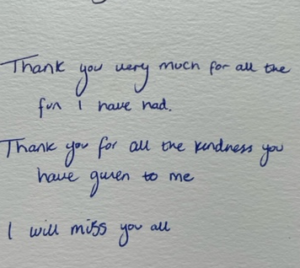 Thank you very much for all the
fun I have had.
Thank you for all the kindness you
have given to me
I will miss you all